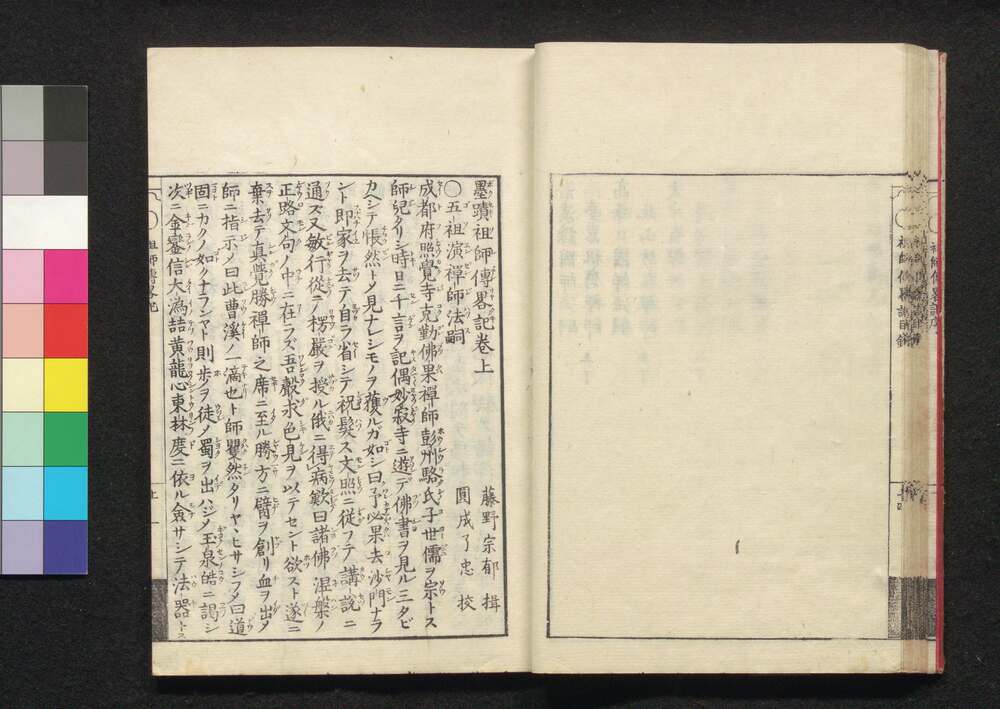 墨蹟祖師傳畧記卷上
藤野宗郁 揖
圓成了忠 挍
〇五祖演禅師法嗣
成都府照覺寺克勤佛果禅師彭州駱氏子世儒ヲ宗トス
師兒タリシ時日ニ千言ヲ記偶妙寂寺ニ遊デ佛書ヲ見ル三タビ
カヘシテ悵然トメ見ナレシモノヲ獲ルガ如シ曰予必果去沙門ナラ
ント即家ヲ去テ自ラ省シテ祝髪ス文照ニ從フテ講説ニ
通ズ又敏行從ニ楞嚴ヲ授ル俄ニ得病歎曰諸佛涅槃ノ
正路文句ノ中ニ在ラズ吾聲求色見ヲ以テセント欲スト遂ニ
棄去テ真覺勝禅師之席ニ至ル勝方ニ臂ヲ創リ血ヲ出メ
師ニ指示メ曰此曹溪ノ一滴也ト師矍然タリヤヽヒサシフメ曰道
固ニカクノ如クナランヤト則歩ヲ徒ノ蜀ヲ出ハジメ玉泉皓ニ謁シ
次ニ金鑾信大溈喆黄龍心東林度ニ依ル僉サシテ法器トス
祖師傳畧記
上 一